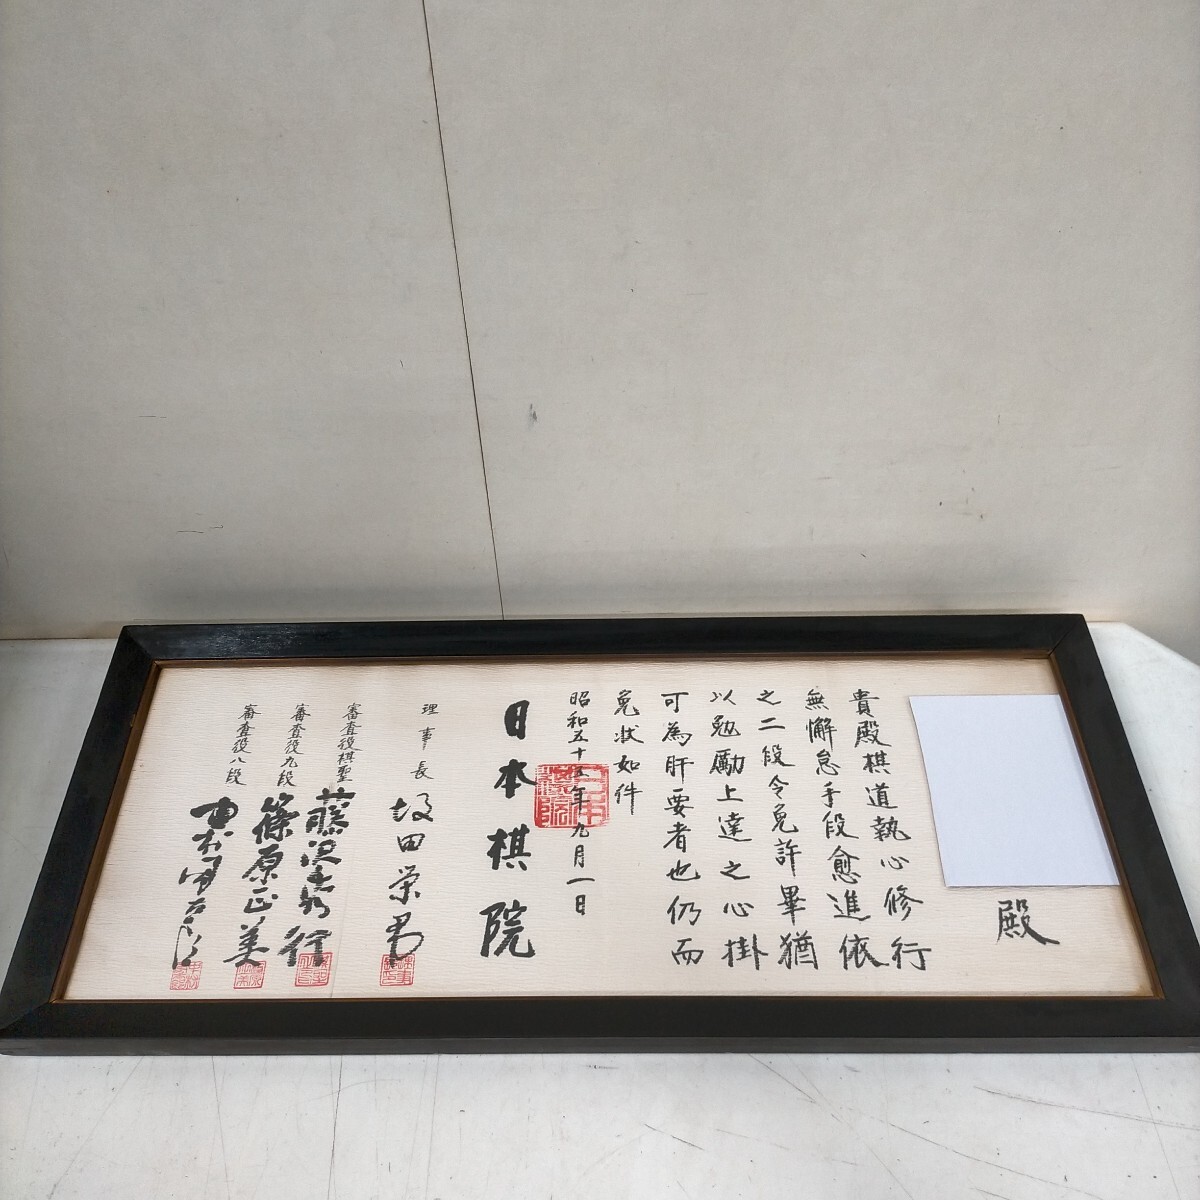 殿
貴殿棋道執心修行
無懈怠手段愈進依
之二段令免許畢猶
以勉励上達之心掛
可為肝要者也仍而
免状如件
昭和五十五年九月一日
日本棋院
理事長 坂田栄男
審査役棋聖 藤沢秀行
審査役九段 篠原正美
審査役八段